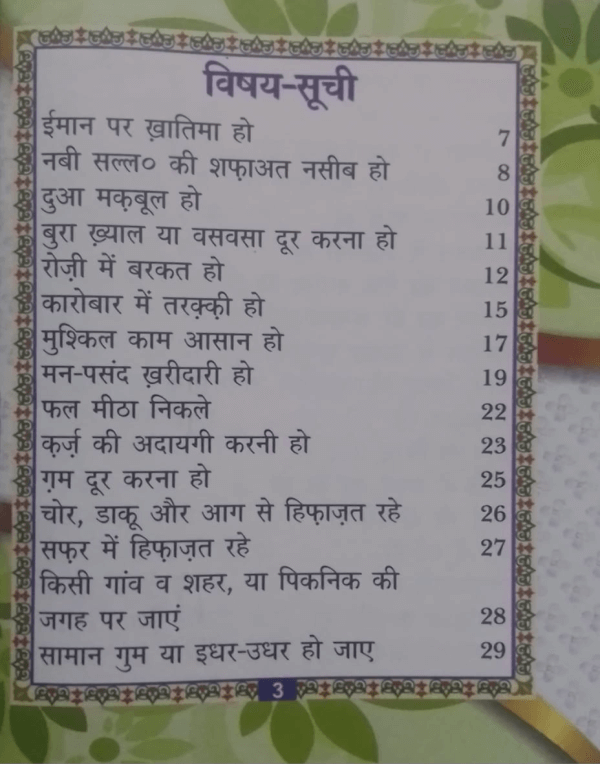 विषय-सूची
ईमान पर ख़ातिमा हो 7
नबी सल्ल० की शफ़ाअत नसीब हो 8
दुआ मक़बूल हो 10
बुरा ख़्याल या वसवसा दूर करना हो 11
रोज़ी में बरकत हो 12
कारोबार में तरक़्क़ी हो 15
मुश्किल काम आसान हो 17
मन-पसंद ख़रीदारी हो 19
फल मीठा निकले 22
क़र्ज़ की अदायगी करनी हो 23
ग़म दूर करना हो 25
चोर, डाकू और आग से हिफ़ाज़त रहे 26
सफ़र में हिफ़ाज़त रहे 27
किसी गांव व शहर, या पिकनिक की
जगह पर जाएं 28
सामान गुम या इधर-उधर हो जाए 29
3